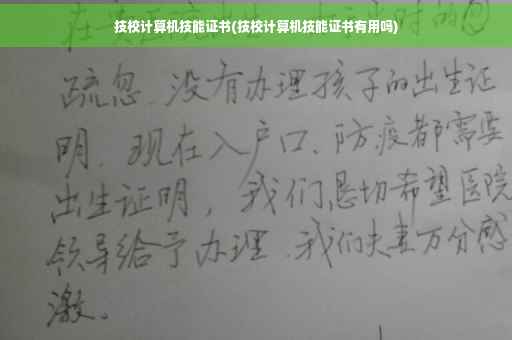 技校计算机技能证书(技校计算机技能证书有用吗)
时的
疏忽、没有办理孩子的出生证
明、现在入户口、防疫都需要
出生证明，我们恳切希望医院
领导给予办理、我们夫妻万分感
激。